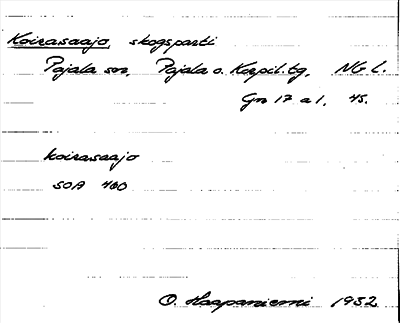 Koirasaajo, skogsparti
Pajala sn, Pajala o. Korpil. tg, NG L.
Grs 17 a 1, 45.
koirasaajo
SOA 460
O. Haapaniemi 1932